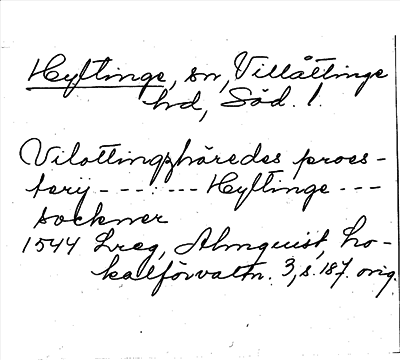 Hyltinge, sn, Villåttinge
hd, Söd. l.
Vilottingzhäredes proes-
terij - - - - - - Hyltinge - - -
sockner
1544 Lreg, Almquist, Lo-
kalförvaltn. 3, s. 187. orig.